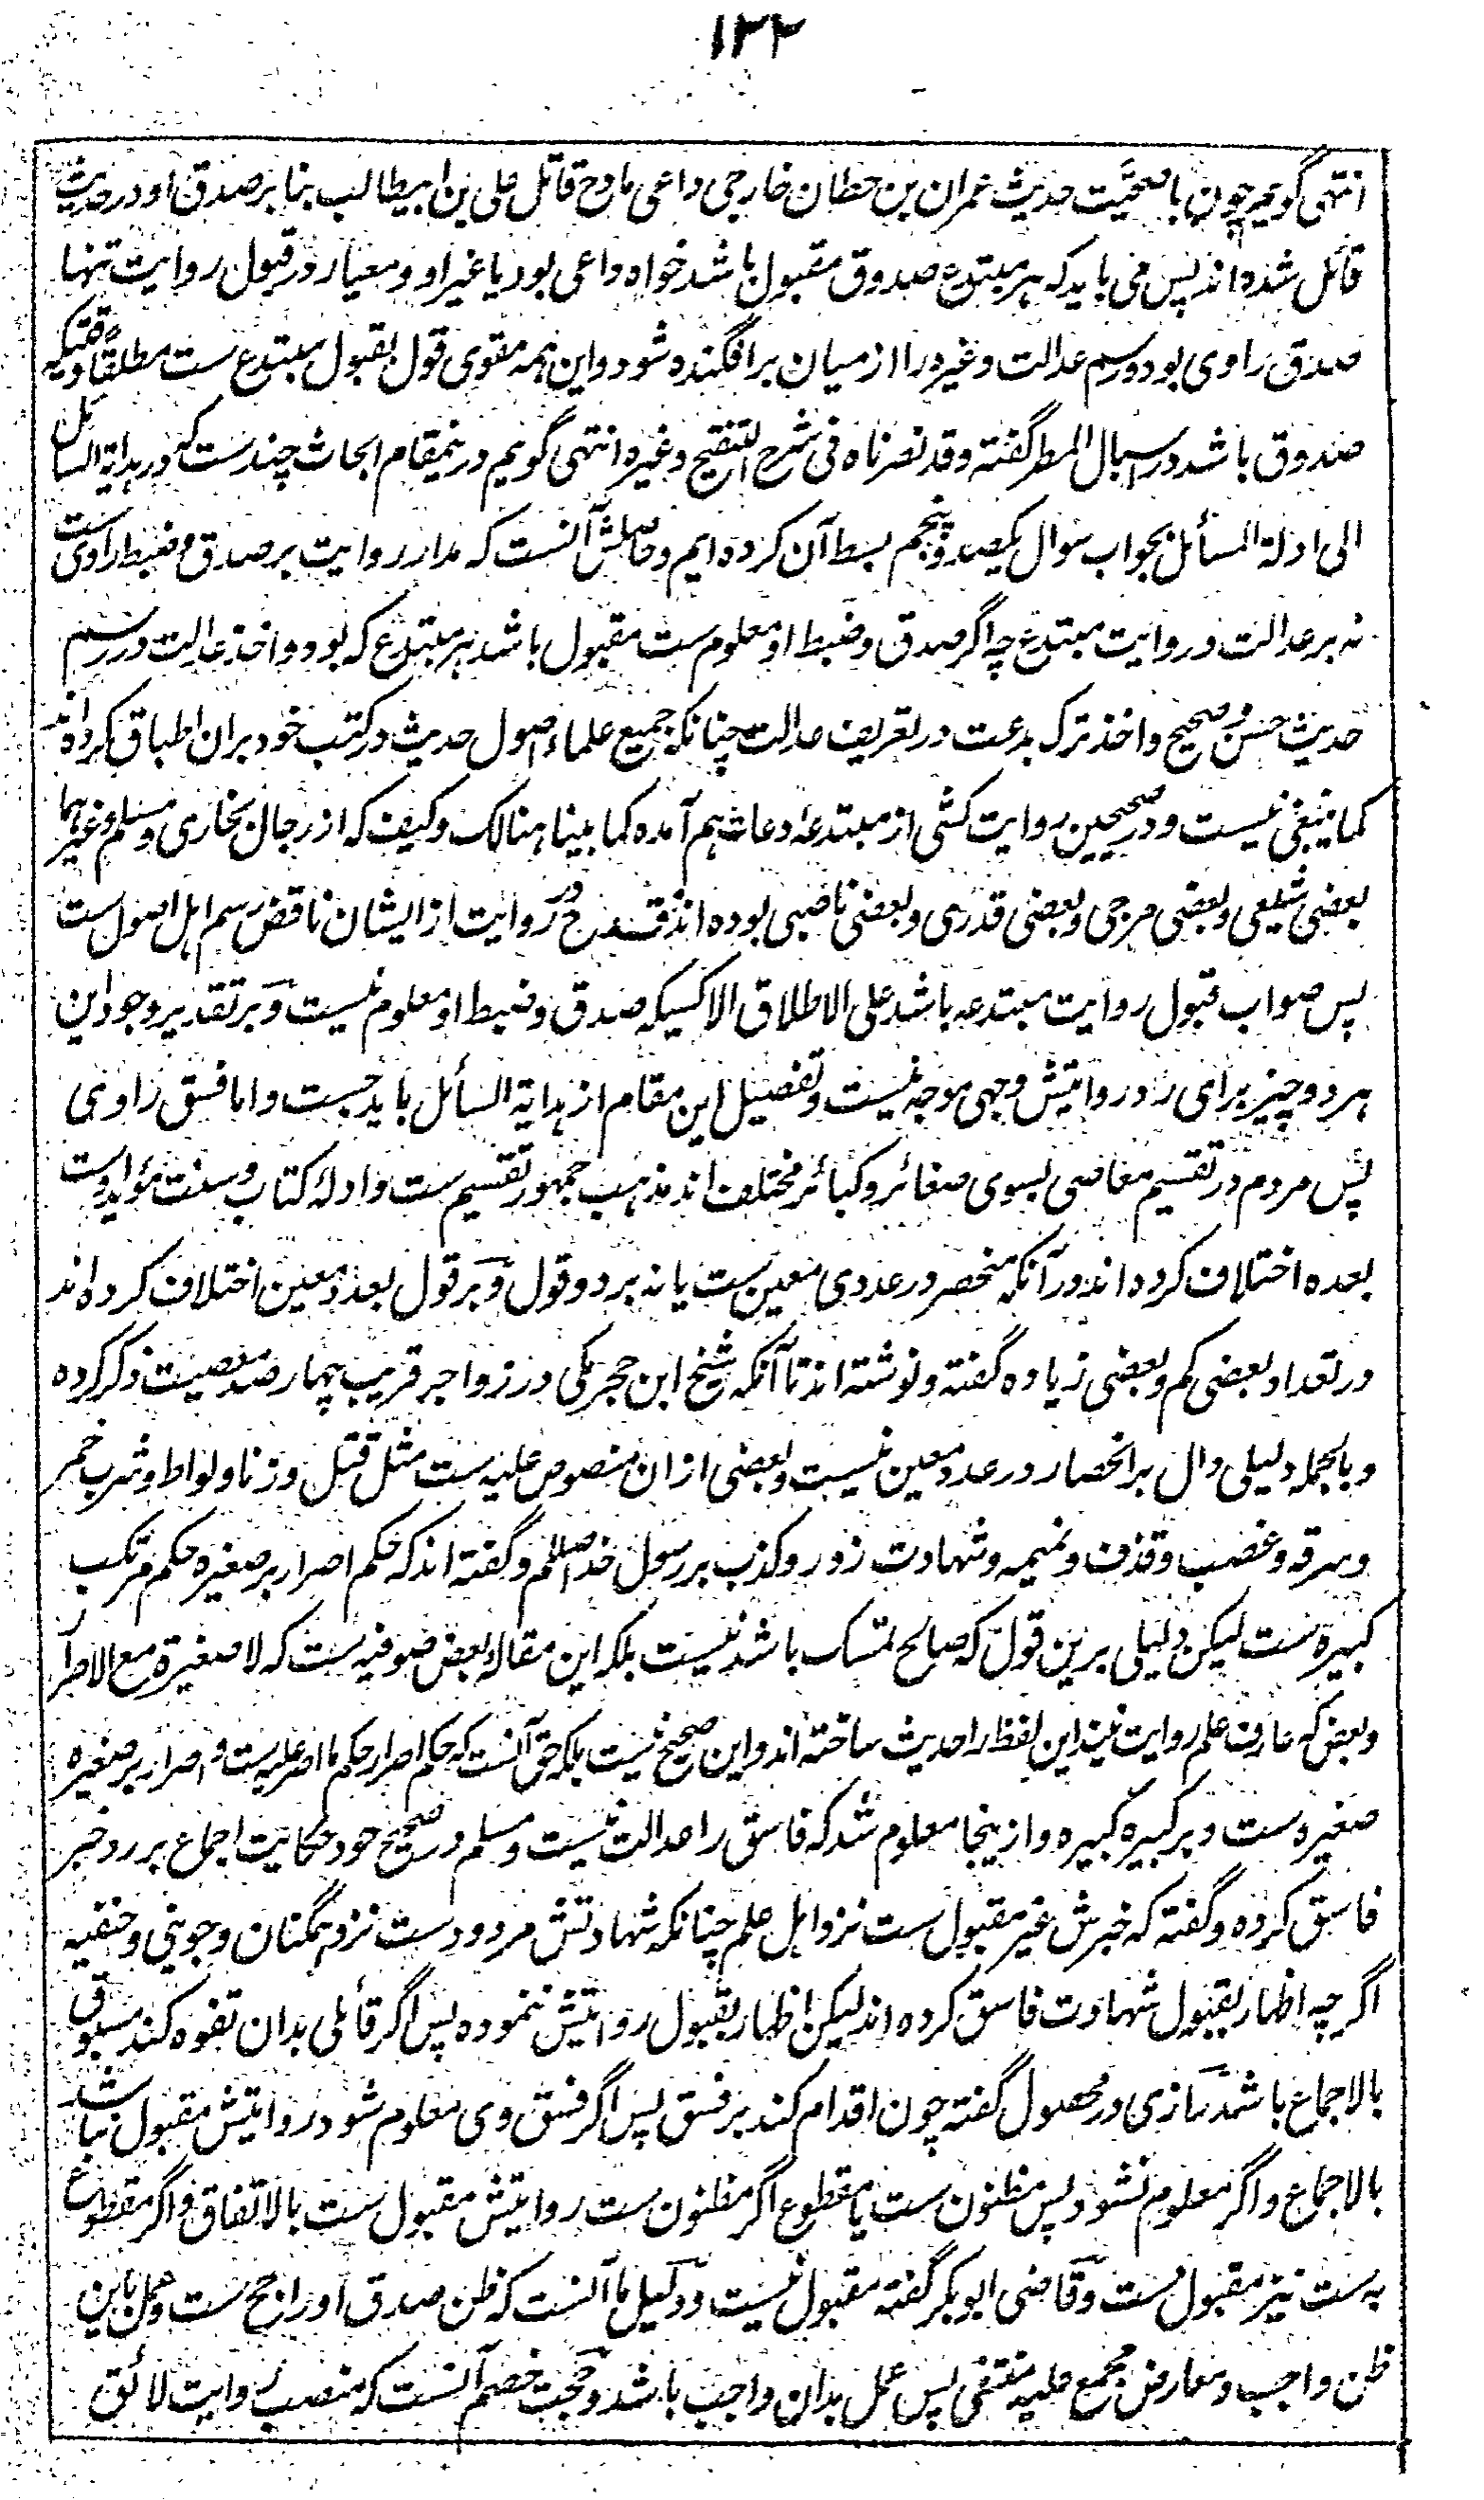 ۱۳۲
انتهی گویم چون با صحیّت حدیث عمران بن حطان خارجی داعی مادح قاتل علی بن ابیطالب بنا بر صدق او در حدیث
قائل شده اند پس می باید که هر مبتدع صدوق مقبول باشد خواه داعی بود یا غیر او و معیار در قبول روایت تنها
صدق راوی بود و رسم عدالت و غیره را از میان برافگنده شود و این همه مقوی قول بقبول مبتدع ست مطلقاً وقتیکه
صدوق باشد در اسبال المطر گفته و قد نصرناه فی شرح التنقیح و غیره انتهی گویم درینمقام ابحاث چندست که در هدایة السائل
الی ادلة المسائل بجواب سوال یکصد و پنجم بسط آن کرده ایم و حاصلش آنست که مدار روایت بر صدق و ضبط راوی ست
نه بر عدالت در روایت مبتدع چه اگر صدق و ضبط او معلوم ست مقبول باشد هر مبتدع که بود و اخذ عدالت در رسم
حدیث حسن و صحیح و اخذ ترک بدعت در تعریف عدالت چنانکه جمیع علماء اصول حدیث در کتب خود بران اطباق کرده اند
کما ینبغی نیست و در صحیحین روایت کثی از مبتدعه و دعات هم آمده کما بینا هنالک و کیف که از رجال بخاری و مسلم و غیرهما
بعضی شیعی و بعضی مرجی و بعضی قدری و بعضی ناصبی بوده اند قدح در روایت از ایشان ناقض رسم اهل اصول ست
پس صواب قبول روایت مبتدعه باشد علی الاطلاق الا کسیکه صدق و ضبط او معلوم نیست و بر تقدیر وجود این
هر دو چیز برای رد روایتش وجهی موجه نیست و تفصیل این مقام از هدایة السائل باید جست و اما فسق راوی
پس مردم در تقسیم معاصی بسوی صغائر و کبائر مختلف اند مذهب جمهور تقسیم ست و ادلهٔ کتاب و سنت مؤید اوست
بعده اختلاف کرده اند در آنکه منحصر در عددی معین ست یا نه بر دو قول و بر قول بعدد معین اختلاف کرده اند
در تعداد بعضی کم و بعضی زیاده گفته و نوشته اند تا آنکه شیخ ابن حجر مکی در زواجر قریب چهار صد معصیت ذکر کرده
و بالجمله دلیلی دال بر انحصار در عدد معین نیست و بعضی ازان منصوص علیه ست مثل قتل و زنا و لواط و شرب خمر
و سرقه و غضب و قذف و نمیمه و شهادت زور و کذب بر رسول خدا صلعم و گفته اند که حکم اصرار بر صغیره حکم مرتکب
کبیره ست لیکن دلیلی برین قول که صالح تمسک باشد نیست بلکه این مقاله بعض صوفیه ست که لا صغیرة مع الاصرار
و بعض که عارف علم روایت نیند این لفظ را حدیث ساخته اند و این صحیح نیست بلکه حق آنست که حکم اصرار حکم ما اصر علیه ست و اصرار بر صغیره
صغیره ست و بر کبیره کبیره و از ینجا معلوم شد که فاسق را عدالت نیست و مسلم در صحیح خود حکایت اجماع بر رد خبر
فاسق کرده و گفته که خبرش غیر مقبول ست نزد اهل علم چنانکه شهادتش مردود ست نزد همگنان و جوینی و حنفیه
اگرچه اظهار بقبول شهادت فاسق کرده اند لیکن اظهار بقبول روایتش ننموده پس اگر قائلی بدان تفوه کند مسبوق
بالاجماع باشد رازی در محصول گفته چون اقدام کند بر فسق پس اگر فسق وی معلوم شود روایتش مقبول نباشد
بالاجماع و اگر معلوم نشود پس مظنون ست یا مقطوع اگر مظنون ست روایتش مقبول ست بالاتفاق و اگر مقطوع
به ست نیز مقبول ست و قاضی ابوبکر گفته مقبول نیست و دلیل ما آنست که ظن صدق او راجح ست و عمل باین
ظن واجب و معارض مجمع علیه منتفی پس عمل بدان واجب باشد و حجت خصم آنست که منصب روایت لائق